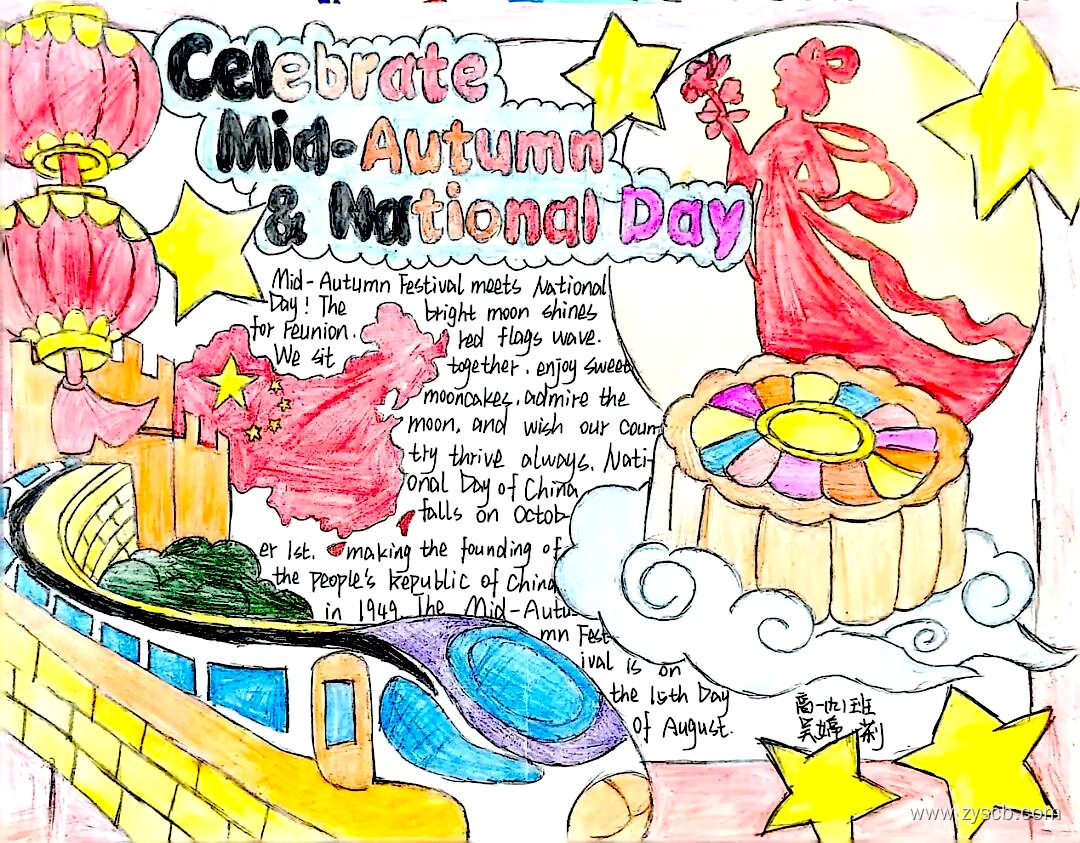 Celebrate
Mid-Autumn
& National Day
Mid-Autumn Festival meets National
Day! The bright moon shines
for Feunion. red flags wave.
We sit together, enjoy sweet
mooncakes, admire the
moon, and wish our coun
try thrive always. Nati-
onal Day of China
falls on Octob-
er 1st, making the founding of
the people's Republic of China
in 1949. The Mid-Autu
mn Fest
ival is on
the 15th Day
of August.
高一(九)班
吴
www.zyscb.com